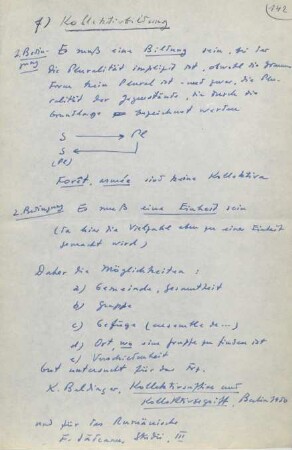 142
f) Kollektivbildung
1. Bedin- Es muß eine Bildung sein, bei der
gung die Pluralität implizit ist, obwohl die Form
kein Plural ist – und zwar, die Plu-
ralität der Gegenstände, die durch die
Grundlage bezeichnet werden
S → Pl
S ←
(Pl)
Forêt, sind keine Kollektiva
2. Bedingung Es muß eine Einheit sein
(da hier die Vielzahl eben zu einer Einheit
gemacht wird)
Daher die Möglichkeiten:
a) Gemeinde, Gesamtheit
b) Gruppe
c) Gefüge (ensemble de...)
d) Ort, wo eine Gruppe zu finden ist
e) Verschiedenheit
Gut untersucht für das Frz.
K. Baldinger, Kollektivsuffixe und
Kollektivbegriff, Berlin 1950
und für das Rumänische
F. Studii, III